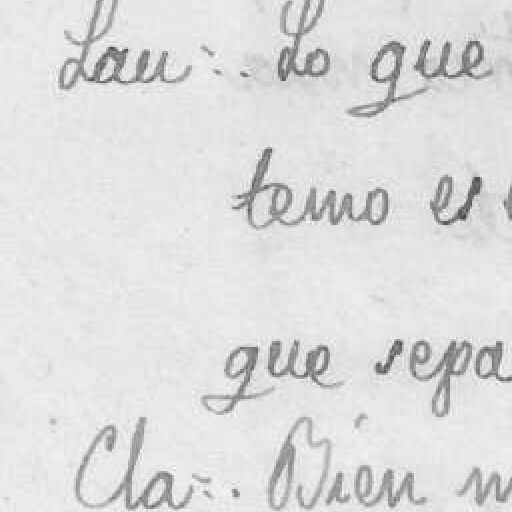 Lau:. Lo que
temo es
que sepa
Cla:. Bien